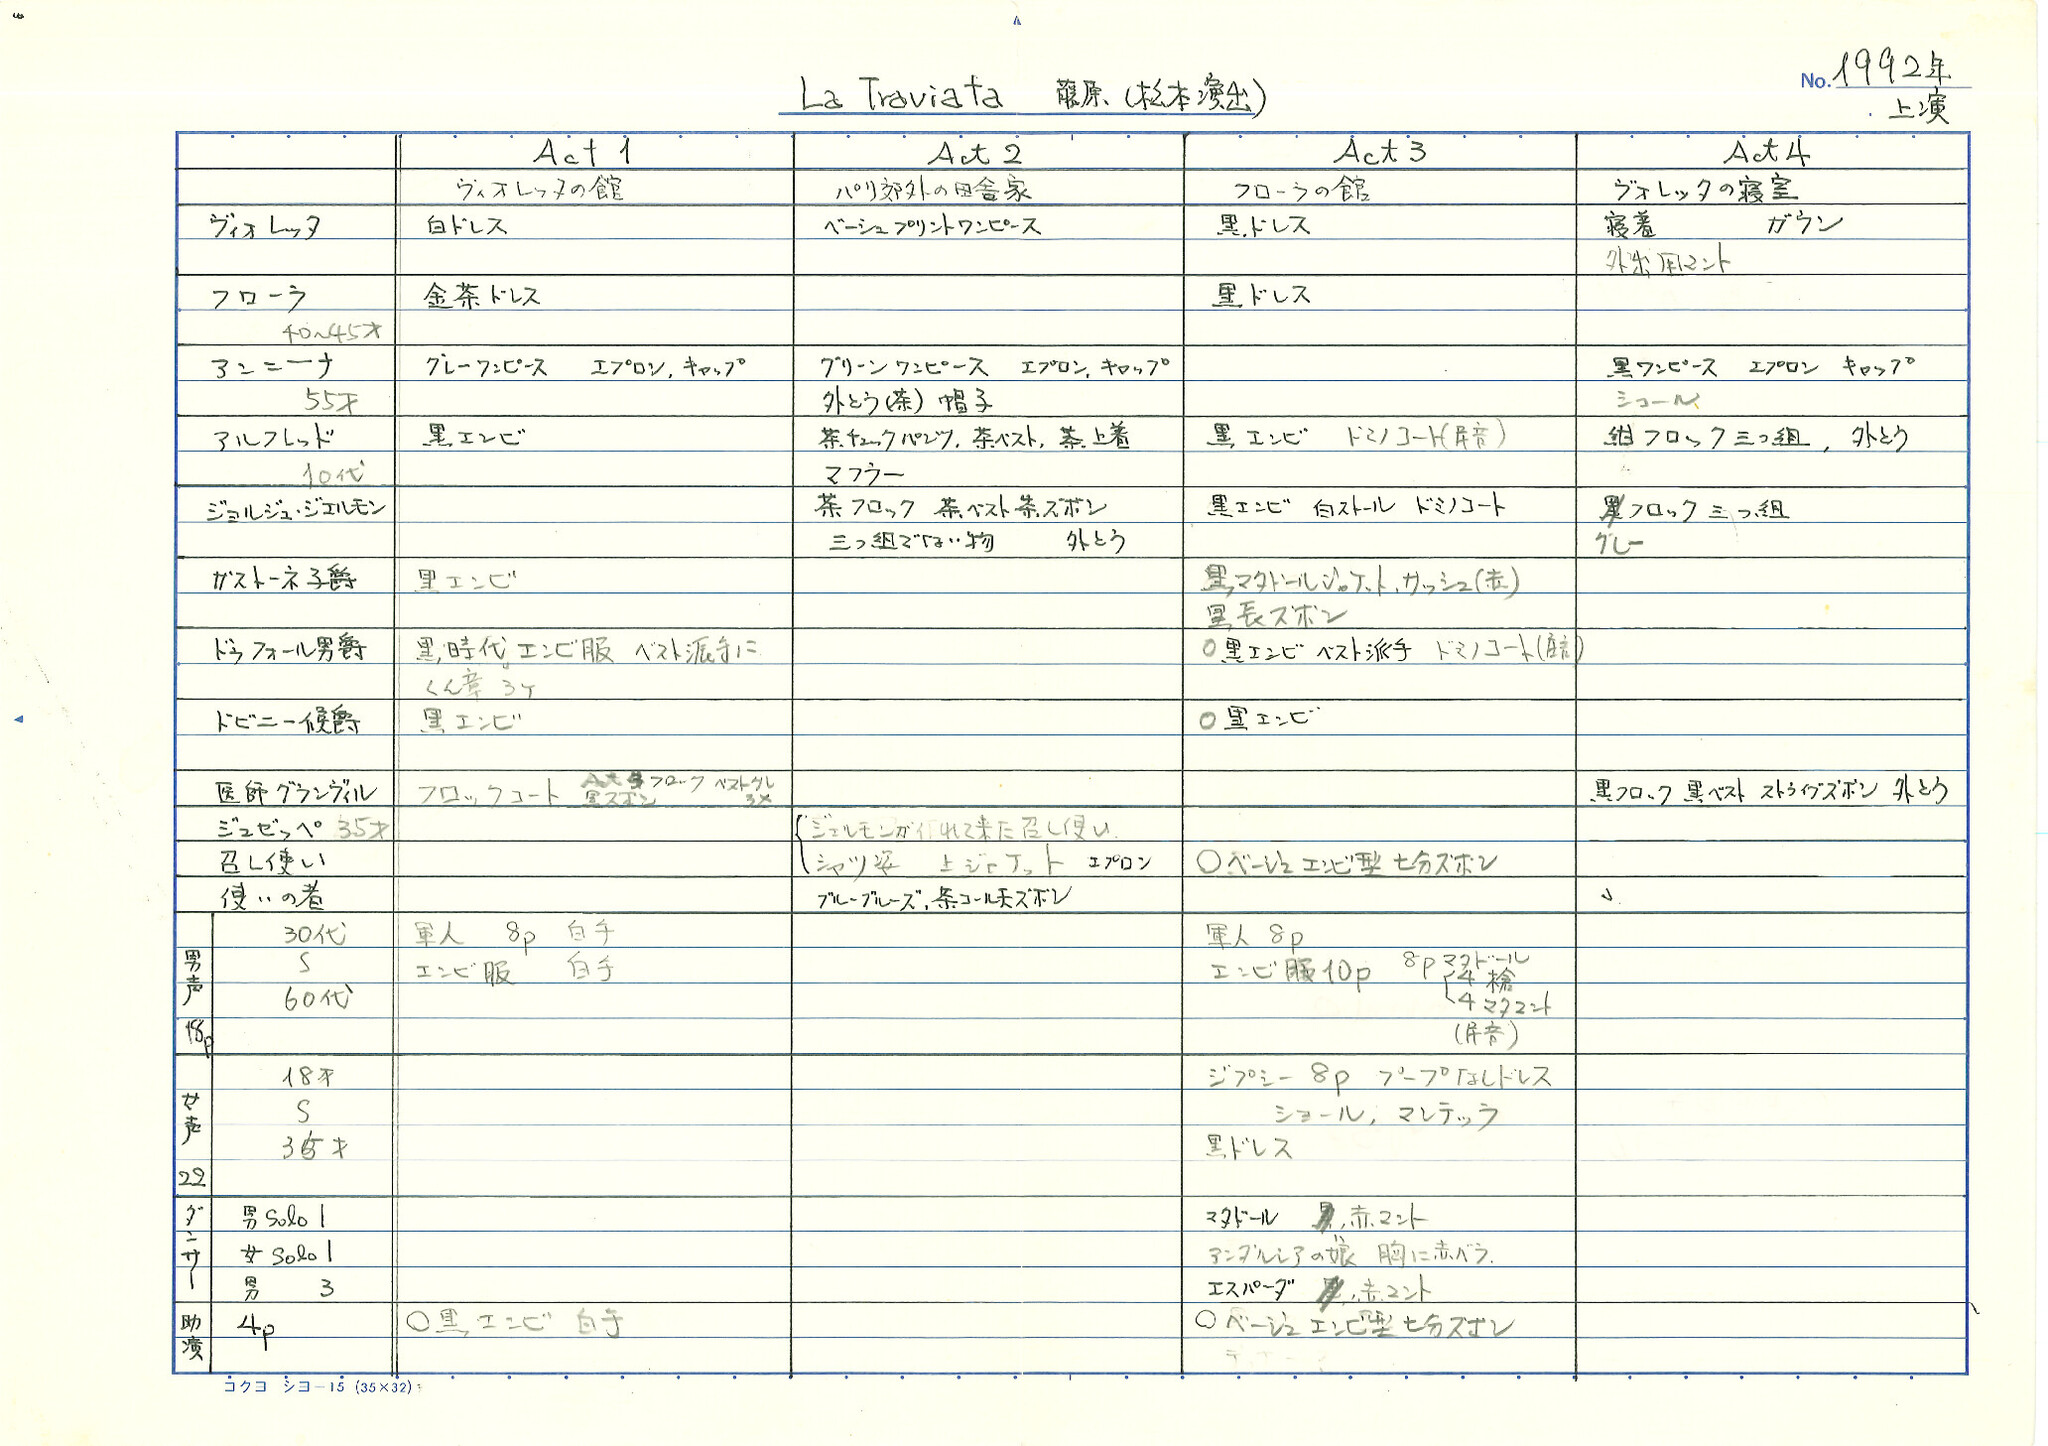 No. 1992年
上演
La Traviata 藤原(杉本演出)
Act 1 Act 2 Act 3 Act 4
ヴィオレッタの館 パリ郊外の田舎家 フローラの館 ヴォレッタの寝室
ヴィオレッタ 白ドレス ベーシュプリントワンピース 黒ドレス 寝着 ガウン
外出用マント
フローラ 金茶ドレス 黒ドレス
40~45才
アンニーナ グレーワンピース エプロン, キャップ グリーンワンピース エプロン, キャップ 黒ワンピース エプロン キャップ
55才 外とう(茶) 帽子 ショール
アルフレッド 黒エンビ 茶チェックパンツ, 茶ベスト, 茶上着 黒エンビ ドミノコート 紺フロック三つ組, 外とう
10代 マフラー
ジョルジュ・ジェルモン 茶フロック 茶ベスト茶ズボン 黒エンビ 白ストール ドミノコート 黒フロック三つ組
三つ組でない物 外とう グレー
ガストーネ子爵 黒エンビ 黒マタドールジャケット, サッシュ(赤)
黒長ズボン
ドゥフォール男爵 黒時代エンビ服 ベスト派手に ○黒エンビ ベスト派手 ドミノコート
くん章 3ケ
ドビニー候爵 黒エンビ ○黒エンビ
医師グランヴィル フロックコート フロック ベスト 黒ズボン 黒フロック 黒ベスト ストライプズボン 外とう
ジュゼッペ 35才 ジェルモンが 来た召し使い
召し使い シャツ姿 上ジャケット エプロン ○ベージュエンビ型七分ズボン
使いの者 ブルーブルーズ, 茶コール天ズボン
男声 18p 30代 軍人 8p 白手 軍人 8p
S エンビ服 白手 エンビ服10p 8pマタドール
4 槍
60代 4 マタマント
女声 22 18才 ジプシー 8p プープなしドレス
S ショール, マンテッラ
35才 黒ドレス
ダンサー 男 Solo 1 マタドール 黒, 赤マント
女 Solo 1 アンダルシアの娘 胸に赤バラ.
男 3 エスパーダ 黒, 赤マント
助演 4p ○黒エンビ 白手 ○ベージュエンビ型七分ズボン
コクヨ シヨ-15 (35×32)